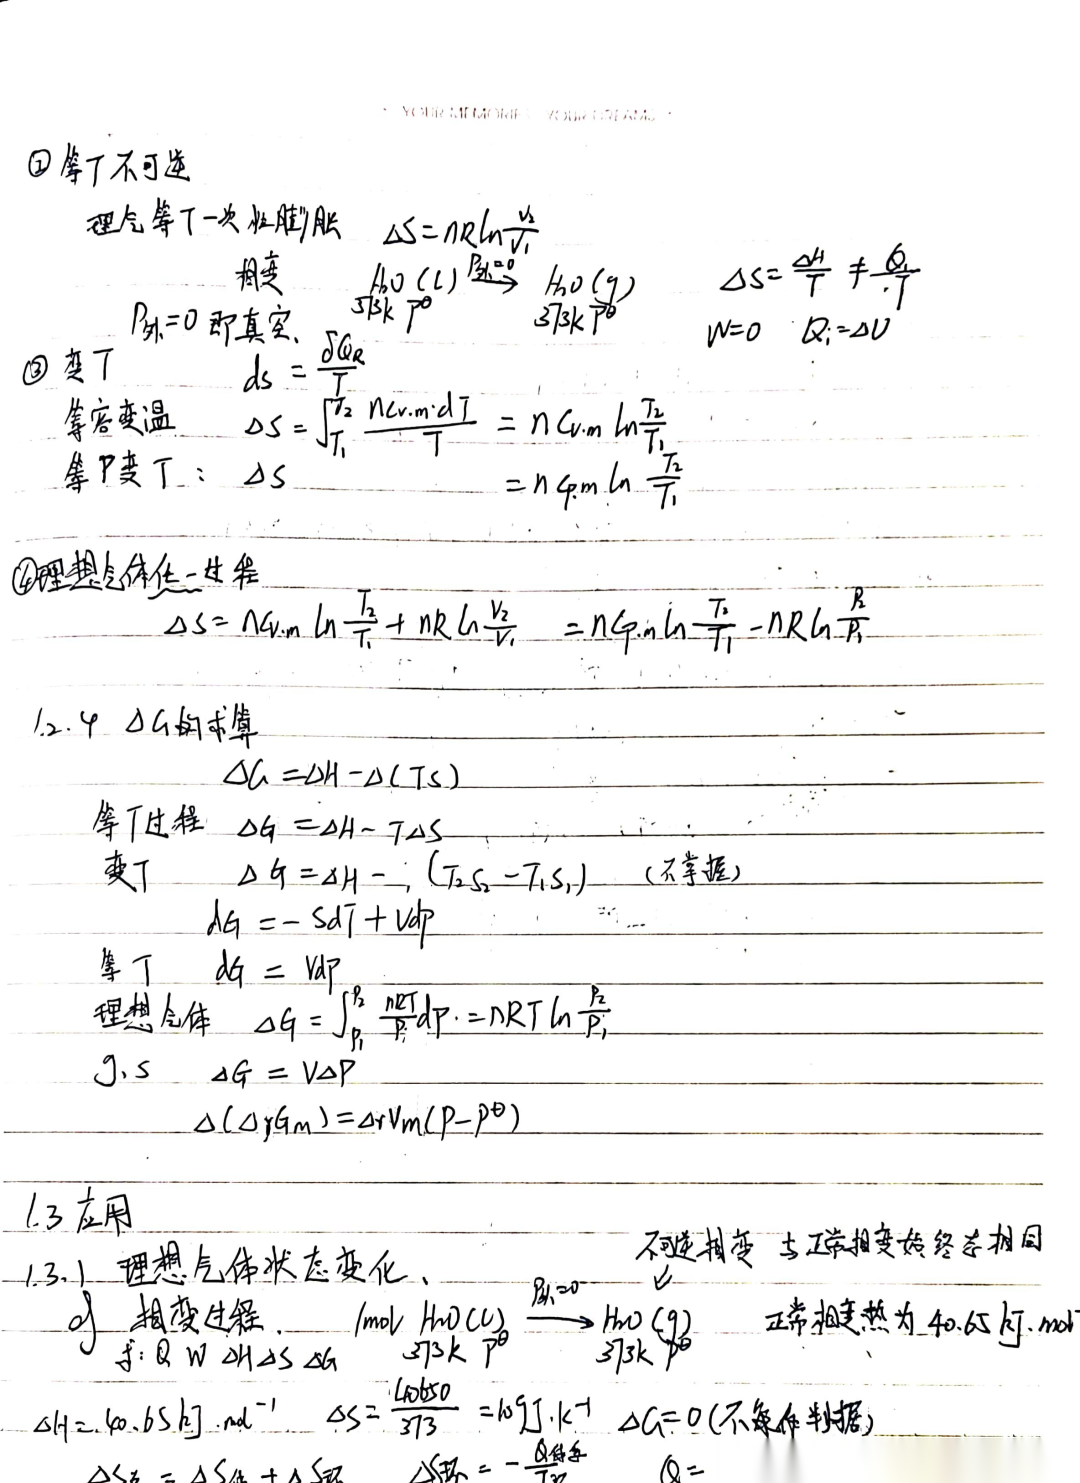 YOUR MEMORIES YOUR DREAMS
② 等T不可逆
理气等T一次性膨胀 ΔS=nRln V₂/V₁
相变 H₂O(l) 373K P^θ —P外=0→ H₂O(g) 373K P^θ ΔS=ΔH/T ≠ Qi/T
P外=0 即真空、 W=0 Qi=ΔU
③ 变T ds = δQR/T
等容变温 ΔS=∫T₁^T₂ nCv.m·dT/T = nCv.m ln T₂/T₁
等P变T: ΔS =nCp.m ln T₂/T₁
④理想气体任一过程
ΔS=nCv.m ln T₂/T₁ + nRln V₂/V₁ =nCp.m ln T₂/T₁ -nRln P₂/P₁
1.2.4 ΔG的求算
ΔG=ΔH-Δ(TS)
等T过程 ΔG=ΔH-TΔS
变T ΔG=ΔH-(T₂S₂-T₁S₁) (不掌握)
dG=-SdT+Vdp
等T dG=Vdp
理想气体 ΔG=∫P₁^P₂ nRT/P dp.=nRTln P₂/P₁
g.s ΔG=VΔP
Δ(ΔrGm)=ΔrVm(P-P^θ)
1.3 应用
不可逆相变 与正常相变始终态相同
1.3.1 理想气体状态变化、
相变过程. 1mol H₂O(l) 373K P^θ —P外=0→ H₂O(g) 373K P^θ 正常相变热为40.65kJ.mol
求: Q W ΔH ΔS ΔG
ΔH=40.65kJ.mol⁻¹ ΔS=40650/373=109J.K⁻¹ ΔG=0(不条件判据)
Q=